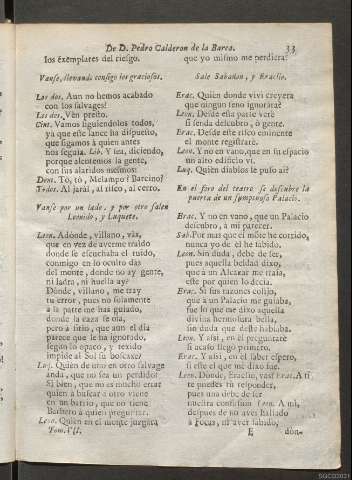 De D. Pedro Calderon de la Barca. 33
los exemplares del riesgo.
Vanse, llevando consigo los graciosos.
Los dos. Aun no hemos acabado
con los salvages?
Los dos. Vèn presto.
Cint. Vamos siguiendolos todos,
ya que este lance ha dispuesto,
que sigamos à quien antes
nos seguia. Lib. Y sea, diciendo,
porque alentemos la gente,
con sus alaridos mesmos:
Dent. To, tò, Melampo? Barcino?
Todos. Al jaral, al risco, al cerro.
Vanse por un lado, y por otro salen
Leonido, y Luquete.
Leon. Adonde, villano, vàs,
que en vez de averme traìdo
donde se escuchaba el ruido,
conmigo en lo oculto dàs
del monte, donde no ay gente,
ni ladra, ni huella ay?
Dònde, villano, me tray
tu error, pues no solamente
à la parte me has guiado,
donde la caza se oìa,
pero à sitio, que aun el dia
parece que le ha ignorado,
segun lo opaco, y texido
impide al Sol su boscaxe?
Luq. Quien de uno en otro salvage
anda, que no sea un perdido?
Si bien, que no es mucho errar
quien à buscar à otro viene
en un barrio, que no tiene
Barbero à quien preguntar.
Leon. Quien en el monte juzgàra
Tom. VII.
que yo mismo me perdiera?
Sale Sabañon, y Eraclio.
Erac. Quien donde vivì creyera
que ningun seno ignoràra?
Leon. Desde esta parte verè
si senda descubro, ò gente.
Erac. Desde este risco eminente
el monte registrarè.
Leon. Y no en vano, que en su espacio
un alto edificio vì.
Luq. Quièn diablos le puso aì?
En el foro del teatro se descubre la
puerta de un sumptuoso Palacio.
Erac. Y no en vano, que un Palacio
descubro, à mi parecer.
Sab. Por mas que el móte he corrido,
nunca yo de èl he sabido.
Leon. Sin duda, debe de ser,
pues aquella beldad dixo,
que à un Alcazar me traìa,
este por quien lo decia.
Erac. Si sus razones colijo,
que à un Palacio me guiaba,
fue lo que me dixo aquella
divina hermosura bella,
sin duda que deste hablaba.
Leon. Y assi, en èl preguntarè
si acaso llegò primero.
Erac. Y assi, en èl saber espero,
si este el que me dixo fue.
Leon. Dònde, Eraclio, vàs? Erac. A tì
te puedes tu responder,
pues una debe de ser
nuestra confusion. Leon. A mì,
despues de no aver hallado
à Focas, ni aver sabido,
E don-